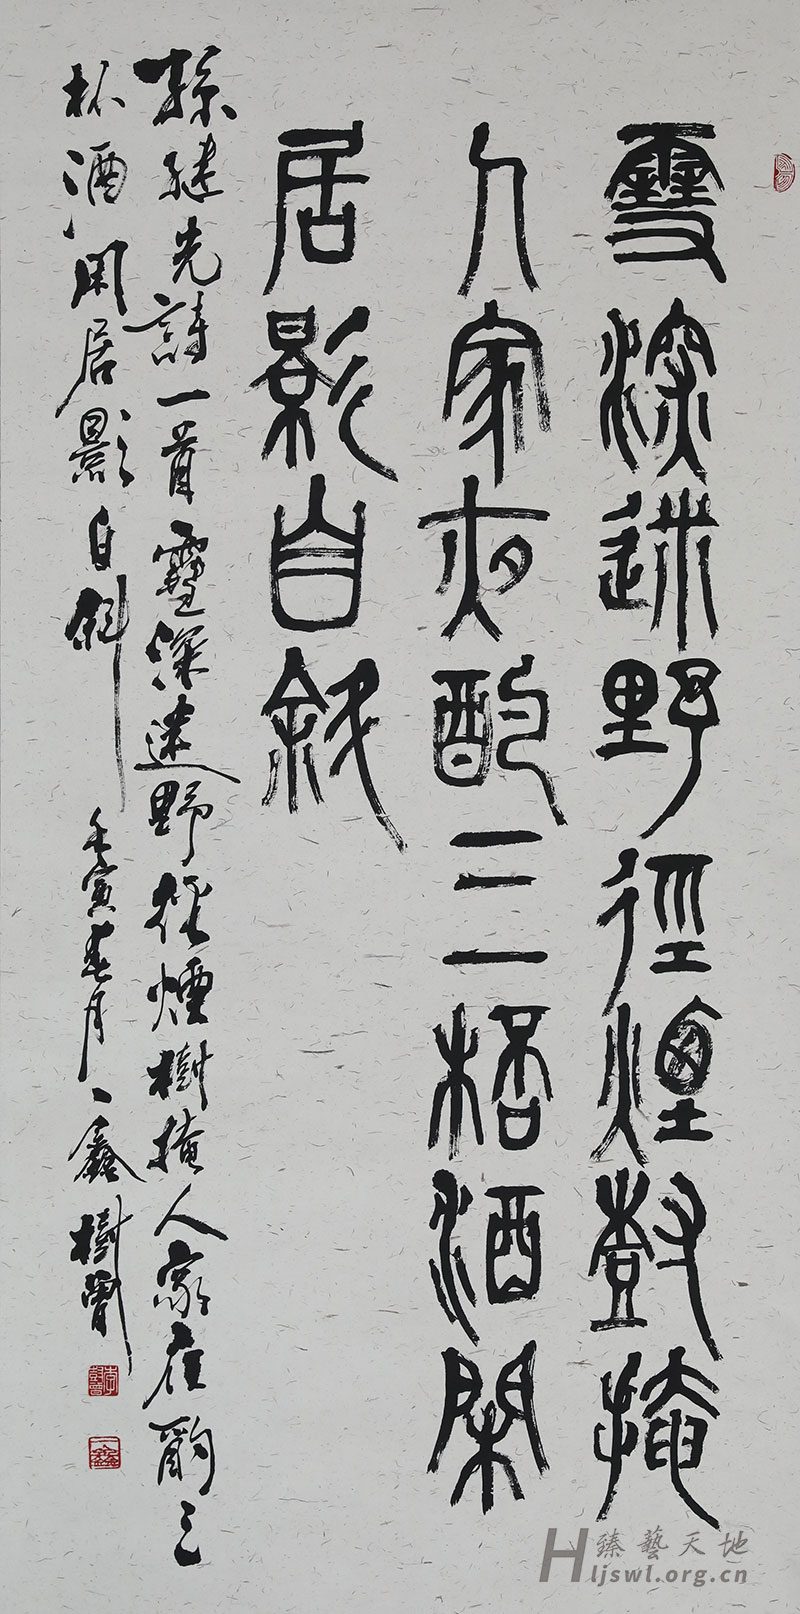 雪深迷野徑煙樹掩
人家夜酌三桮酒閑
居影自斜
孫继先詩一首雪深迷野徑煙樹掩人家夜酌三
杯酒閑居影自斜 壬寅春月一鑫樹曾
臻藝天地
Hljswl.org.cn